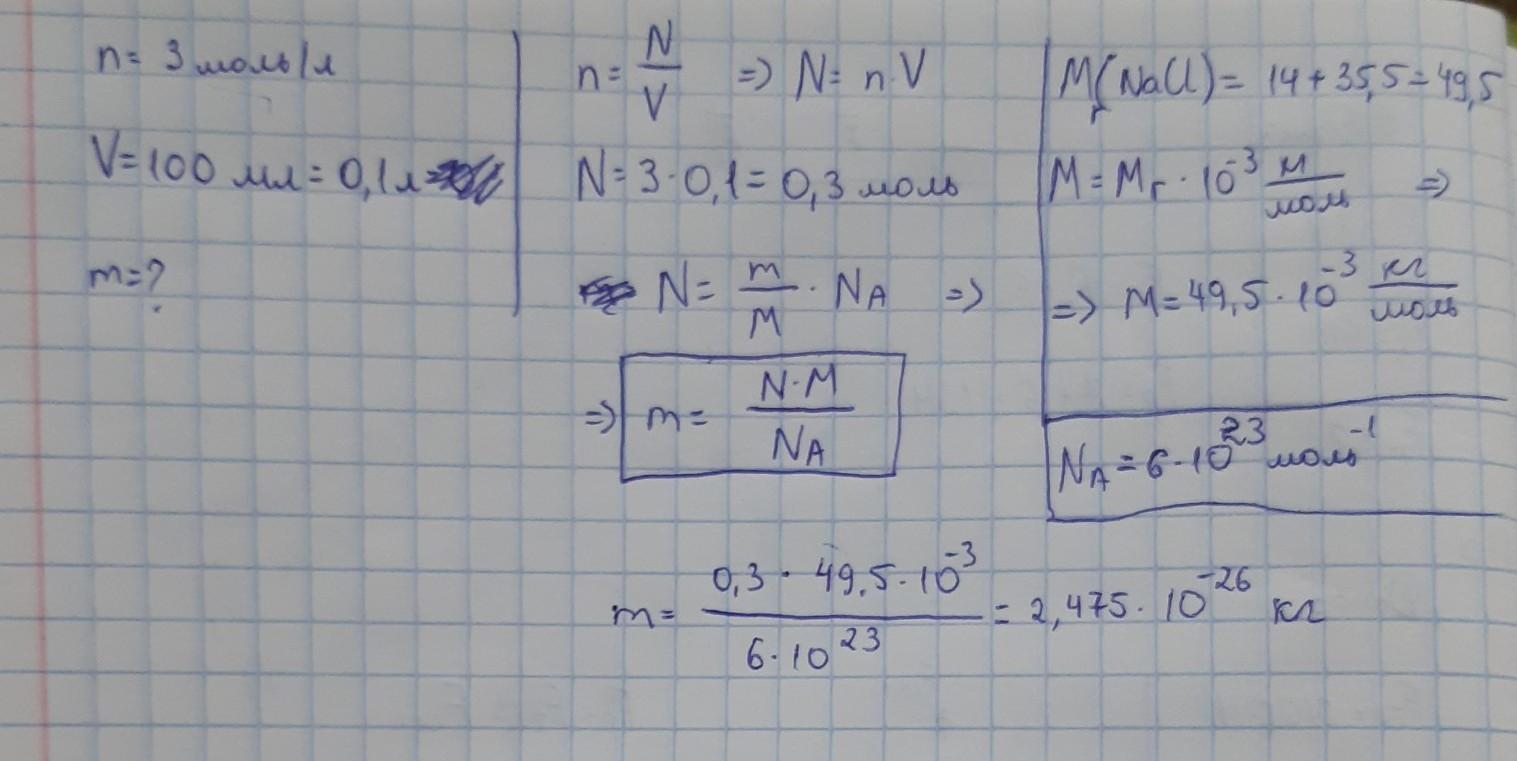 n= 3 моль/л
V=100 мл = 0,1л
m=?
n= N/V => N= n·V
N=3·0,1= 0,3 моль
N= m/M · NA =>
=> m= N·M/NA
Mr(NaCl)= 14+35,5=49,5
M=Mr·10⁻³ м/моль =>
=> M=49,5·10⁻³ кг/моль
NA=6·10²³ моль⁻¹
m= 0,3·49,5·10⁻³/6·10²³ = 2,475·10⁻²⁶ кг